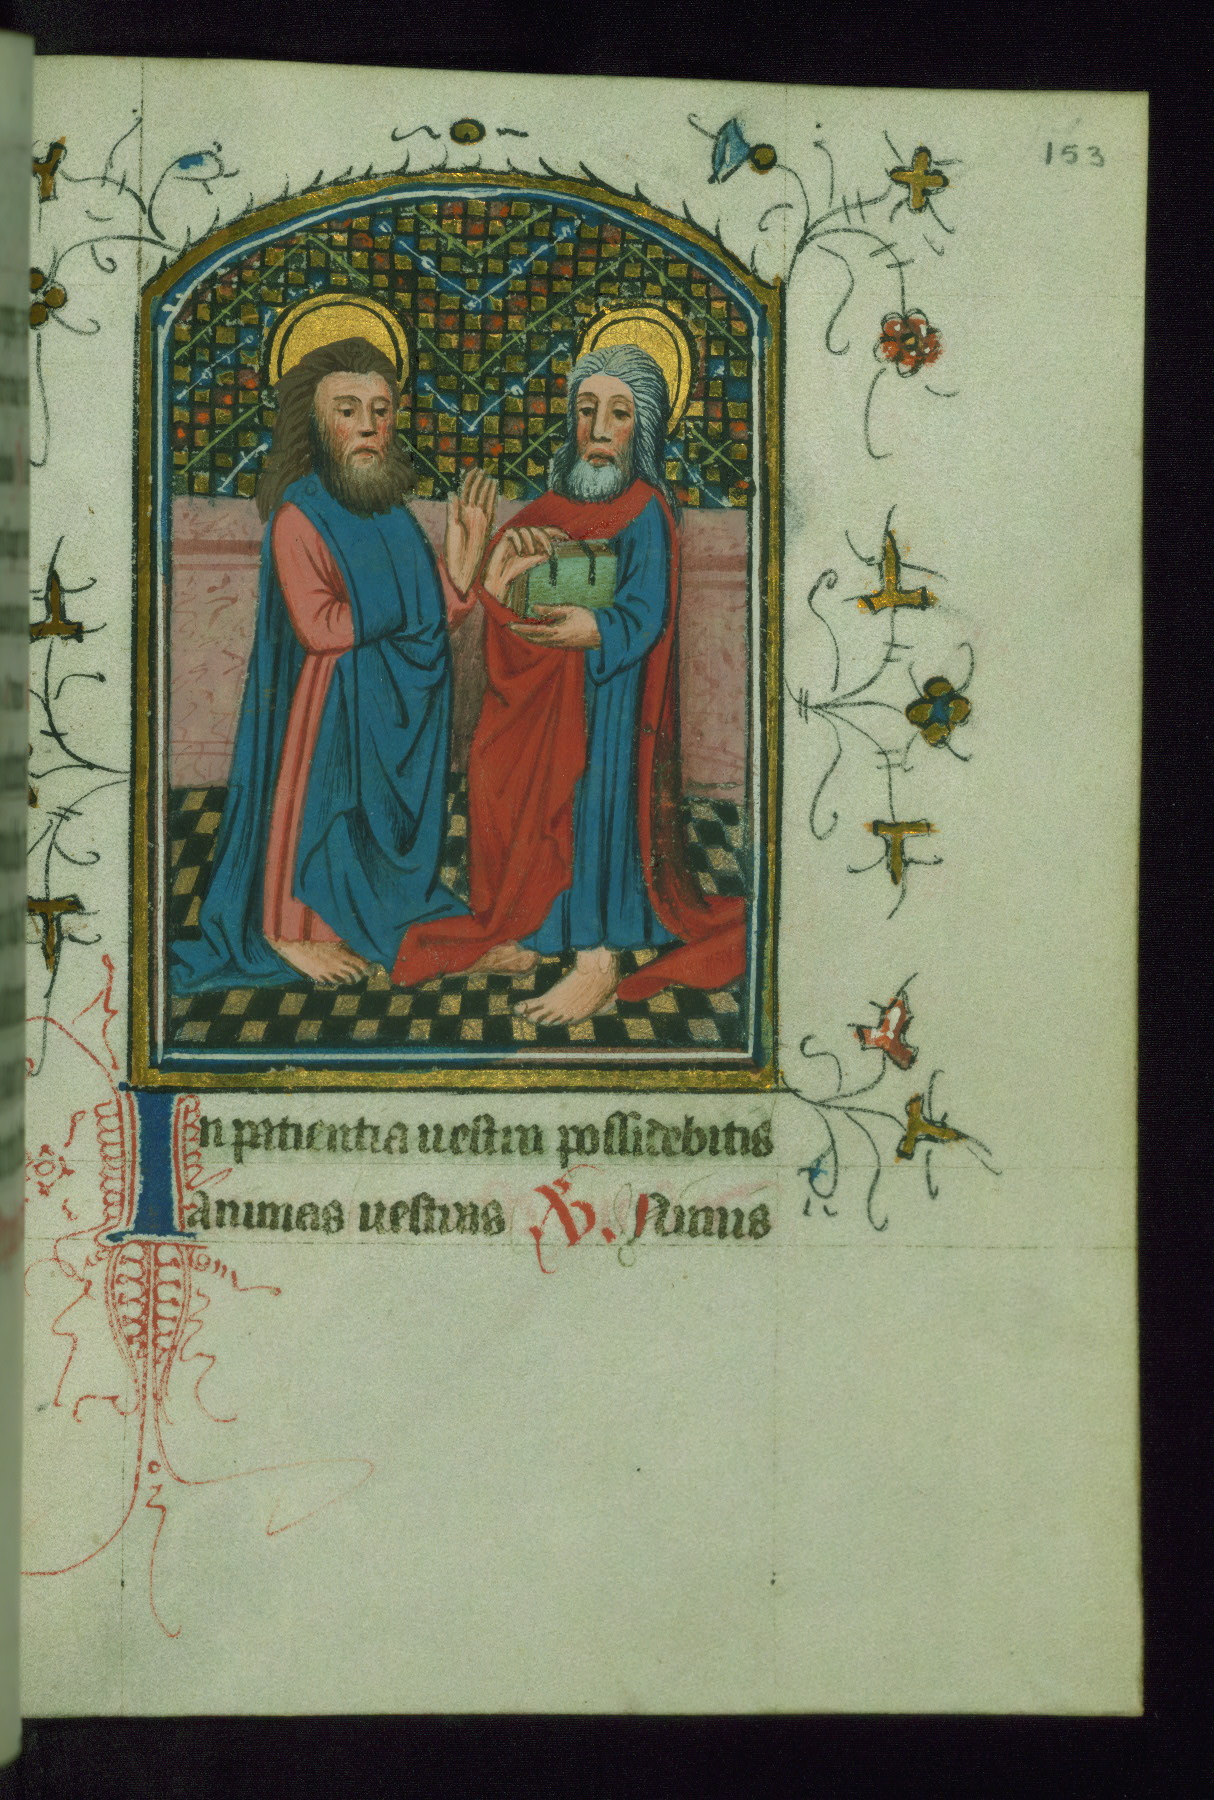 153
In patientia uestra possidebitis
animas uestras V. Nimis